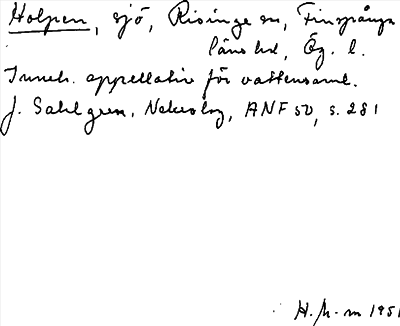 Holpen, sjö, Risinge sn, Finspånga
läns hd, Ög. l.
Inneh. appellativ för vattensaml.
J. Sahlgren, Nekrolog, ANF 50, s. 281
H. M-m 1951